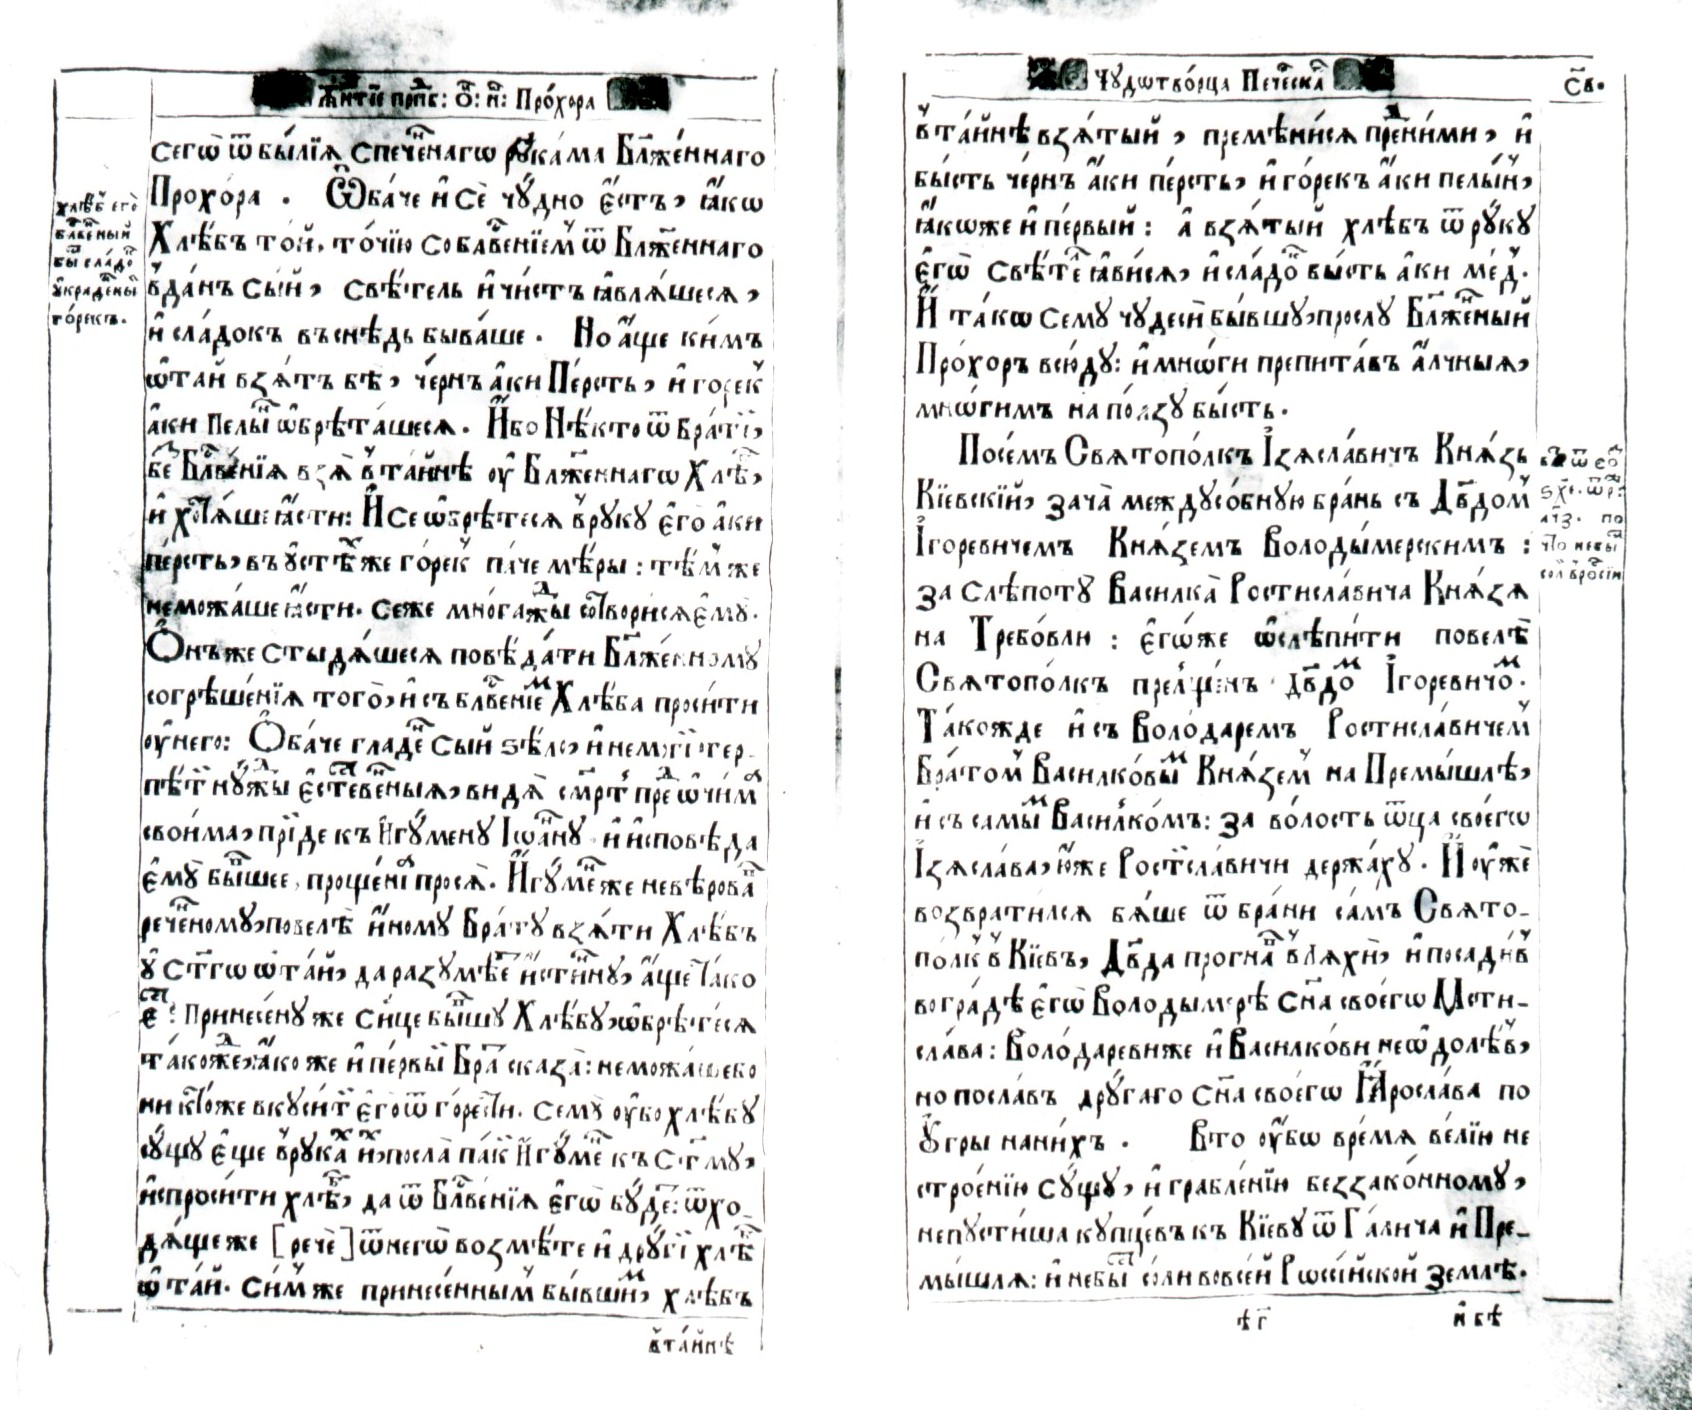 Житїе прпⷣб: ѻ҃: н҃: Про́хора
сегѡ̀ ѿ бы́лїѧ спече́нⷩагѡ рꙋка́ма Бл҃же́ннаго
Про́хора . Ѻ҆ба́че и҆ сѐ чꙋ́дно є҆́сть, ꙗ҆́кѡ
Хлѣ́бъ то́й, то́чїю со благⷭ҇ве́нїемъ ѿ Бл҃же́ннаго
в̾да́нъ сы́й, свѣ́телъ и҆ чи́стъ ꙗ҆влѧ́шесѧ,
и҆ сла́докъ въ снѣ́дь быва́ше . Но а҆́ще ки́мъ
ѡ҆та́й взѧ́тъ бѣ̀, че́рнъ а҆́ки Пе́рсть, и҆ го́рек̾
а҆́ки пелы́нⷩ ѡ҆брѣта́шесѧ . И҆́бо Нѣ́кто ѿ Бра́тїи,
бе́з̾ Блⷭ҇ве́нїѧ взѧ̀ в̾та́йнѣ ᲂу҆ Бл҃же́ннагѡ Хлѣ́бъ,
и҆ хотѧ́ше ꙗ҆́сти: И҆ се ѡ҆брѣ́тесѧ в̾рꙋкꙋ̀ є҆гѡ̀ а҆́ки
пе́рсть, въ ᲂу҆стѣ́хъ же го́рек̾ па́че мѣ́ры : тѣ́м̾же
не можа́ше ꙗ҆́сти. Се́же мно́гажⷣы сотвори́сѧ є҆мꙋ̀.
Ѻ҆́нъ же стыдѧ́шесѧ повѣ́дати Бл҃же́нномꙋ
согрѣше́нїѧ того̀, и҆ съ блⷭ҇ве́нїемⷨ Хлѣ́ба проси́ти
ᲂу҆ него̀: Ѻ҆ба́че гла́денⷩ сы́й ѕѣ́лѡ, и҆ не моги́й тер-
пѣ́ти нꙋ́жⷣы є҆стⷭ҇ве́нныѧ, ви́дѧ сме́рть преⷣ ѻ҆чи́ма
свои́ма, прїи́де къ И҆гꙋ́менꙋ І҆ѡа́ннꙋ и҆ и҆сповѣ́да
є҆мꙋ̀ бы́вшее, проще́нїѧ просѧ̀. И҆гꙋ́менⷩ же не вѣ́ровавⷡ
рече́нномꙋ, повелѣ̀ и҆́номꙋ Бра́тꙋ взѧ́ти Хлѣ́бъ
ᲂу҆ Ст҃гѡ ѡ҆та́й, да разꙋмѣ́етъ и҆́стиннꙋ, а҆́ще та́ко
є҆́сть : Принесе́нꙋ же си́це бы́вшꙋ Хлѣ́бꙋ, ѡ҆брѣ́тесѧ
та́кожⷣе, ꙗ҆́ко же и҆ пе́рвый Бра́тъ сказа̀: не можа́ше бо
ни кто́же вкꙋси́ти є҆гѡ̀ ѿ го́рести. Семꙋ̀ ᲂу҆́бо хлѣ́бꙋ
сꙋ́щꙋ є҆щѐ в̾рꙋка́хъ и҆́хъ, посла̀ па́ки И҆гꙋ́менⷩ къ Ст҃мꙋ,
и҆спроси́ти хлѣ́бъ, да ѿ Блⷭ҇ве́нїѧ є҆гѡ̀ бꙋ́детъ: ѿхо-
дѧ́ще же [ речѐ ] ѿ негѡ̀ возмѣ́те и҆ дрꙋгі́й хлѣ́бъ
ѡ҆та́й. Си́м̾ же принесе́нным̾ бы́вшимⷨ, хлѣ́бъ
в̾та́йнѣ
хлѣ́бъ є҆гѡ̀
блⷭ҇ве́нный
бы́ сла́докⷪ
ᲂу҆кра́денный
го́рекъ.
Чꙋдѡтво́рца Пече́рскаⷢ
с҃в.
в̾та́йнѣ взѧ́тый, премѣни́сѧ преⷣ ни́ми, и҆
бы́сть че́рнъ а҆́ки пе́рсть, и҆ го́рекъ а҆́ки пелы́нⷩ,
ꙗ҆́коже и҆ пе́рвый : а҆ взѧ́тый хлѣ́бъ ѿ рꙋкꙋ̀
є҆гѡ̀ свѣ́телъ ꙗ҆ви́сѧ, и҆ сла́докъ бы́сть а҆́ки ме́д̾.
И҆ та́кѡ семꙋ̀ чꙋдесѝ бы́вшꙋ, прослꙋ̀ Бл҃же́нный
Про́хоръ всю́дꙋ: и҆ мнѡ́ги препита́въ а҆́лчныѧ,
мнѡ́гимъ на по́лзꙋ бы́сть.
По се́мъ Свѧтопо́лкъ І҆зѧсла́вичъ Кнѧ́зь
Кі́евскїй, зача̀ междꙋсо́бнꙋю бра́нь съ Дв҃дом̾
І҆́горевичемъ Кнѧ́земъ Володы́мерскимъ :
за слѣпотꙋ̀ Василка̀ Ростисла́вича Кнѧ́зѧ
на Требо́вли : є҆гѡ́же ѡ҆слѣпи́ти повелѣ̀
Свѧтопо́лкъ прельще́нъ Дв҃домⷨ І҆́горевичомⷨ.
Та́кожде и҆ съ Воло́даремъ Ростисла́вичем̾
Бра́том̾ Василко́вымⷨ Кнѧ́зем̾ на Премы́шлѣ,
и҆ съ самы́мⷨ Васи́лкомъ: за во́лость ѻ҆тца̀ своегѡ̀
І҆зѧсла́ва, ю҆́же Ростисла́вичи держа́хꙋ. И҆ ᲂу҆жѐ
возврати́лсѧ бѧ́ше ѿ бра́ни са́мъ Свѧто-
по́лк̾ в̾ Кі́евъ, Дв҃да прогна́въ в̾ Лѧ́хи, и҆ посади́въ
во гра́дѣ є҆гѡ̀ Володымерѣ Сн҃а своегѡ̀ Мсти-
сла́ва: Воло́дареви же и҆ Василко́ви не ѡ҆долѣ́в̾,
но посла́въ дрꙋга́го Сн҃а своегѡ̀ Ꙗ҆росла́ва по
Оу҆́гры на ни́хъ . В то ᲂу҆́бѡ вре́мѧ ве́лїю не
строе́нїю сꙋ́щꙋ, и҆ грабле́нїю беззако́нномꙋ,
не пꙋсти́ша кꙋпце́въ къ Кі́евꙋ ѿ Га́лича и҆ Пре-
мы́шлѧ: и҆ не бы́сть со́ли во все́й Рѡссі́йской землѣ̀.
и҆ бѣ̀